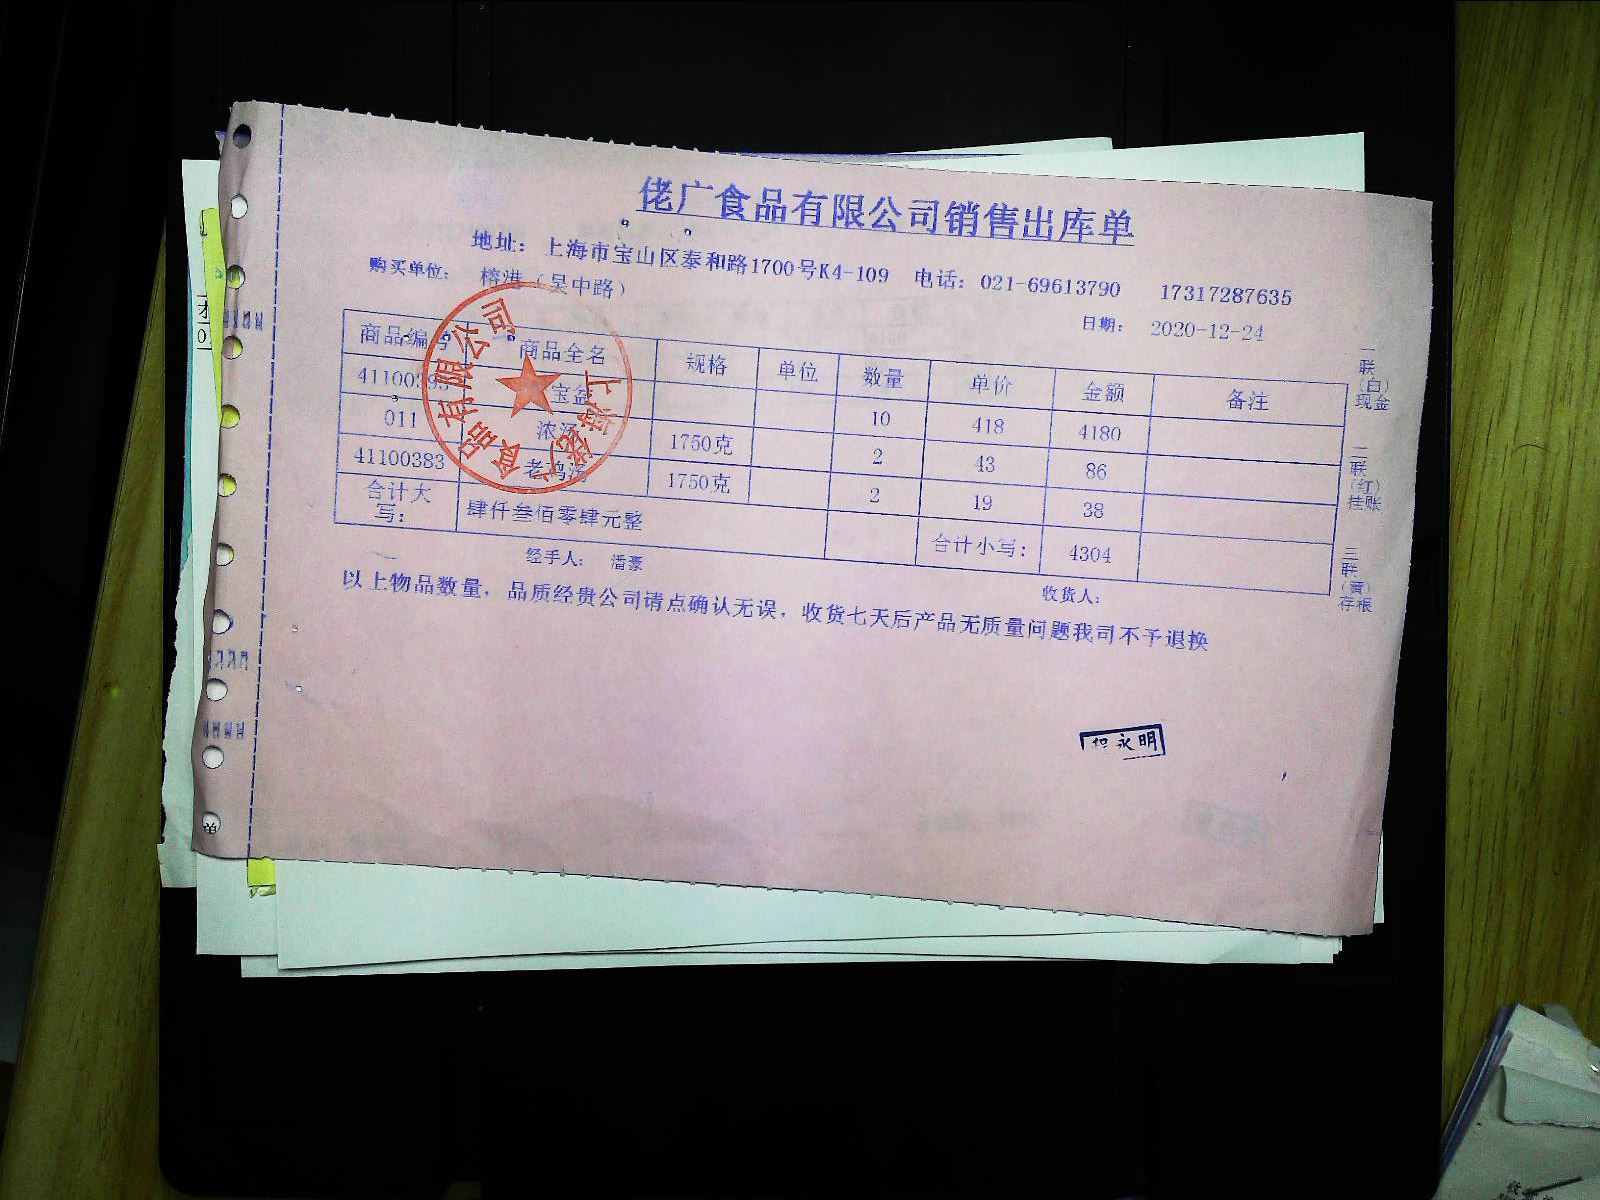 佬广食品有限公司销售出库单
地址： 上海市宝山区泰和路1700号K4-109 电话：021-69613790 17317287635
购买单位： 榕港（吴中路）
日期： 2020-12-24
商品编号 商品全名 规格 单位 数量 单价 金额 备注
41100393 宝盆 10 418 4180
011 浓汤 1750克 2 43 86
41100383 老鸡汤 1750克 2 19 38
合计大写： 肆仟叁佰零肆元整 合计小写： 4304
经手人： 潘豪 收货人：
以上物品数量，品质经贵公司请点确认无误，收货七天后产品无质量问题我司不予退换
一联（白）现金
二联（红）挂账
三联（黄）存根
上海佬广食品有限公司
永明